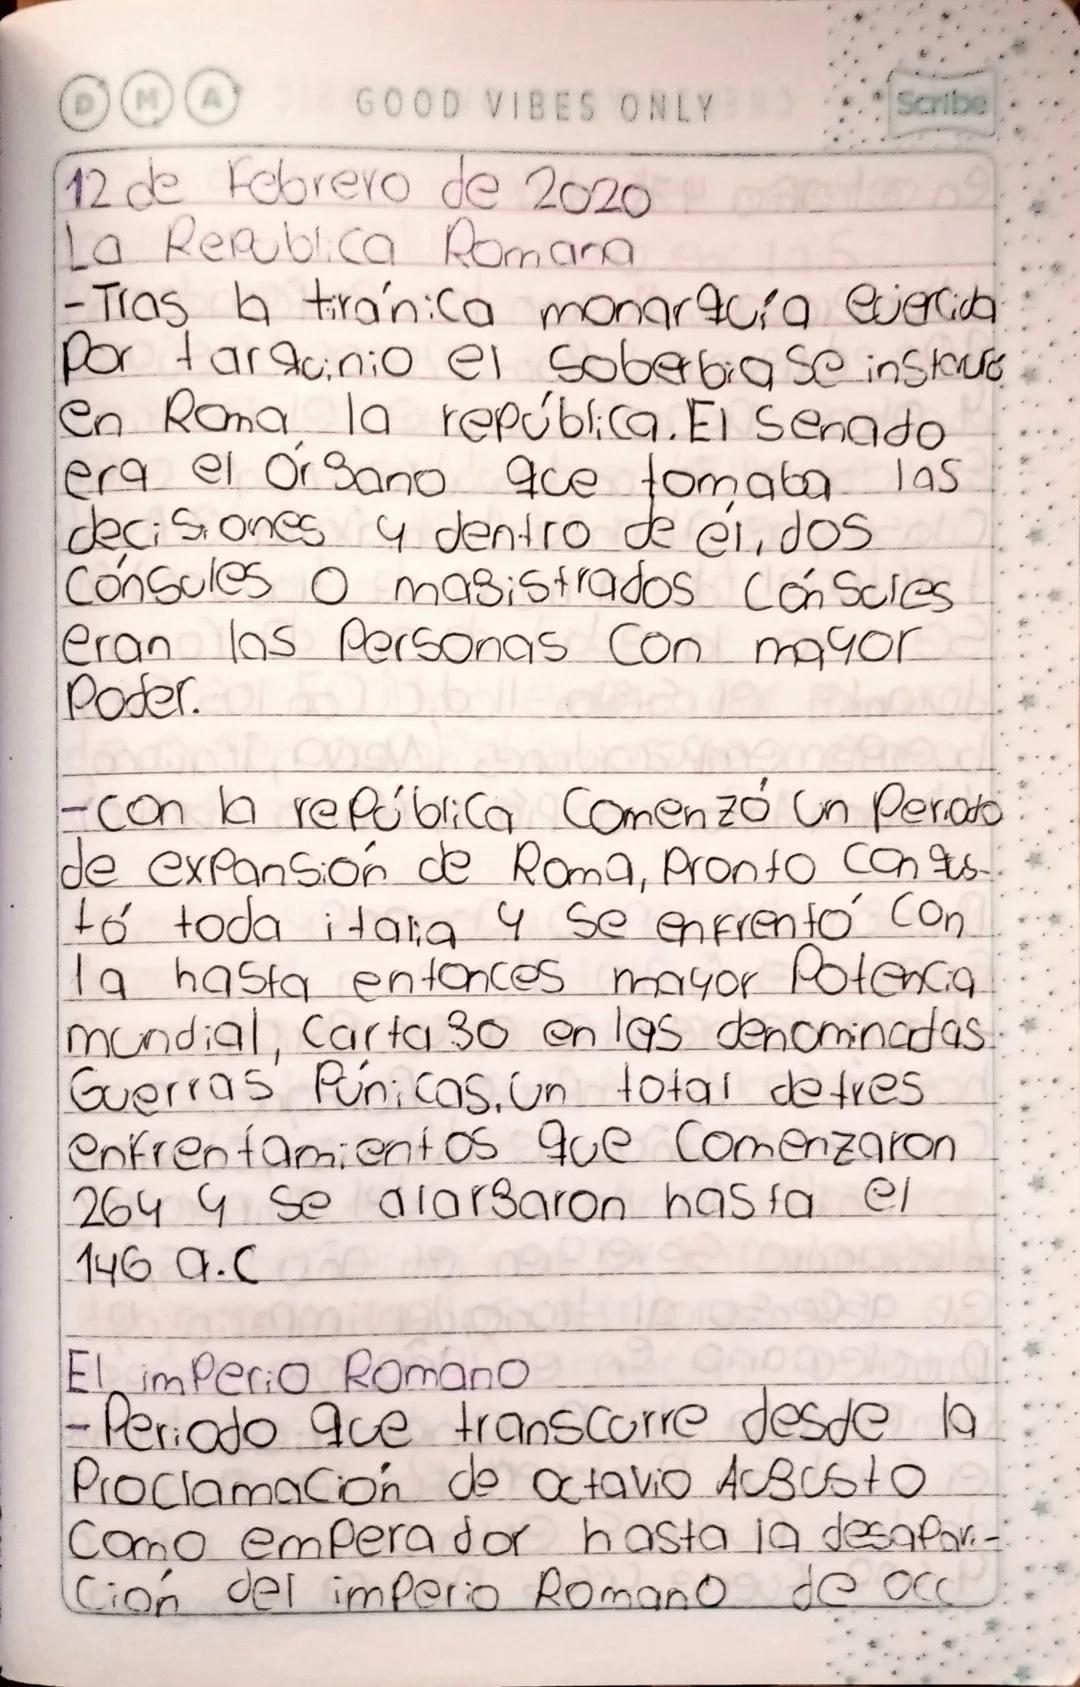 D M A GOOD VIBES ONLY Scribe
12 de Febrero de 2020
La Republica Romana
-Tras la tiránica monarquía ejercida
Por tarquinio el soberbia se instauró
en Roma la república. El senado
era el Órgano que tomaba las
decisiones y dentro de él, dos
Cónsules o magistrados Cónsules
eran las Personas Con mayor
Poder.
-con la república Comenzó un Periodo
de expansión de Roma, Pronto Conquis-
tó toda italia y se enfrentó con
la hasta entonces mayor Potencia
mundial, Cartago en las denominadas
Guerras Púnicas, un total de tres
enfrentamientos que Comenzaron
264 y se alargaron hasta el
146 a.C
El imperio Romano
-Periodo que transcurre desde la
Proclamación de octavio Augusto
Como emperador hasta la desapari-
ción del imperio Romano de occ